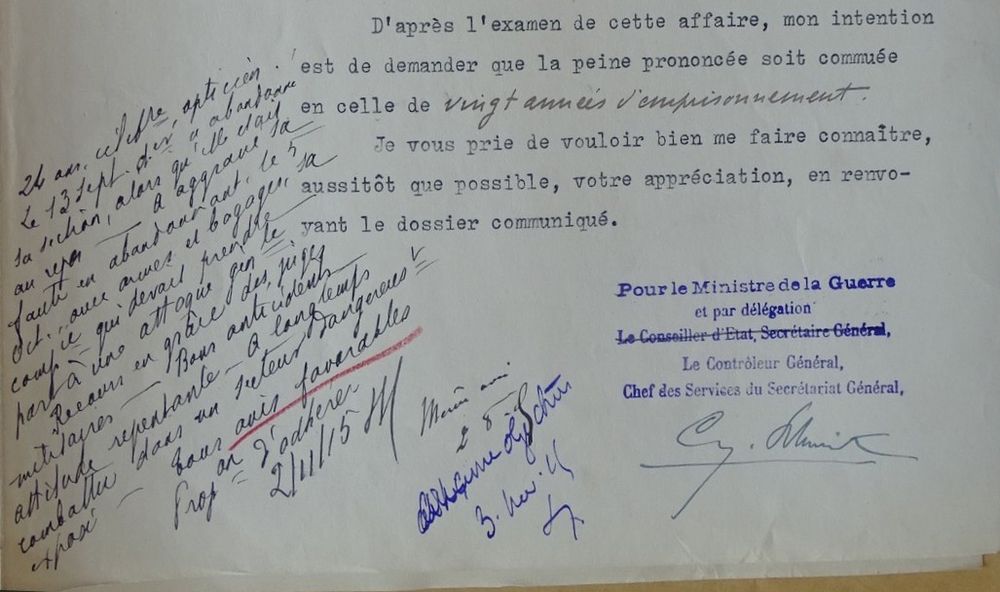 D'après l'examen de cette affaire, mon intention
est de demander que la peine prononcée soit commuée
en celle de vingt années d'emprisonnement.
Je vous prie de vouloir bien me faire connaître,
aussitôt que possible, votre appréciation, en renvo-
yant le dossier communiqué.
24 ans, célibre, opticien.
Le 13 Sept. dix a abandonné
sa section, alors qu'elle était
au repos — A aggravé sa
faute en abandonnant, le 5
Oct., avec armes et bagages, sa
compie qui devait prendre
part à une attaque gen le
Recours en grâce des juges
militaires — Bons antécédents
attitude repentante — A longtemps
combattu dans un secteur dangereux
exposé — Tous avis favorables
Prop on d'adhérer
2/11/15
Même avis
3. Nov. 15
Pour le Ministre de la Guerre
et par délégation
Le Conseiller d'Etat, Secrétaire Général,
Le Contrôleur Général,
Chef des Services du Secrétariat Général,